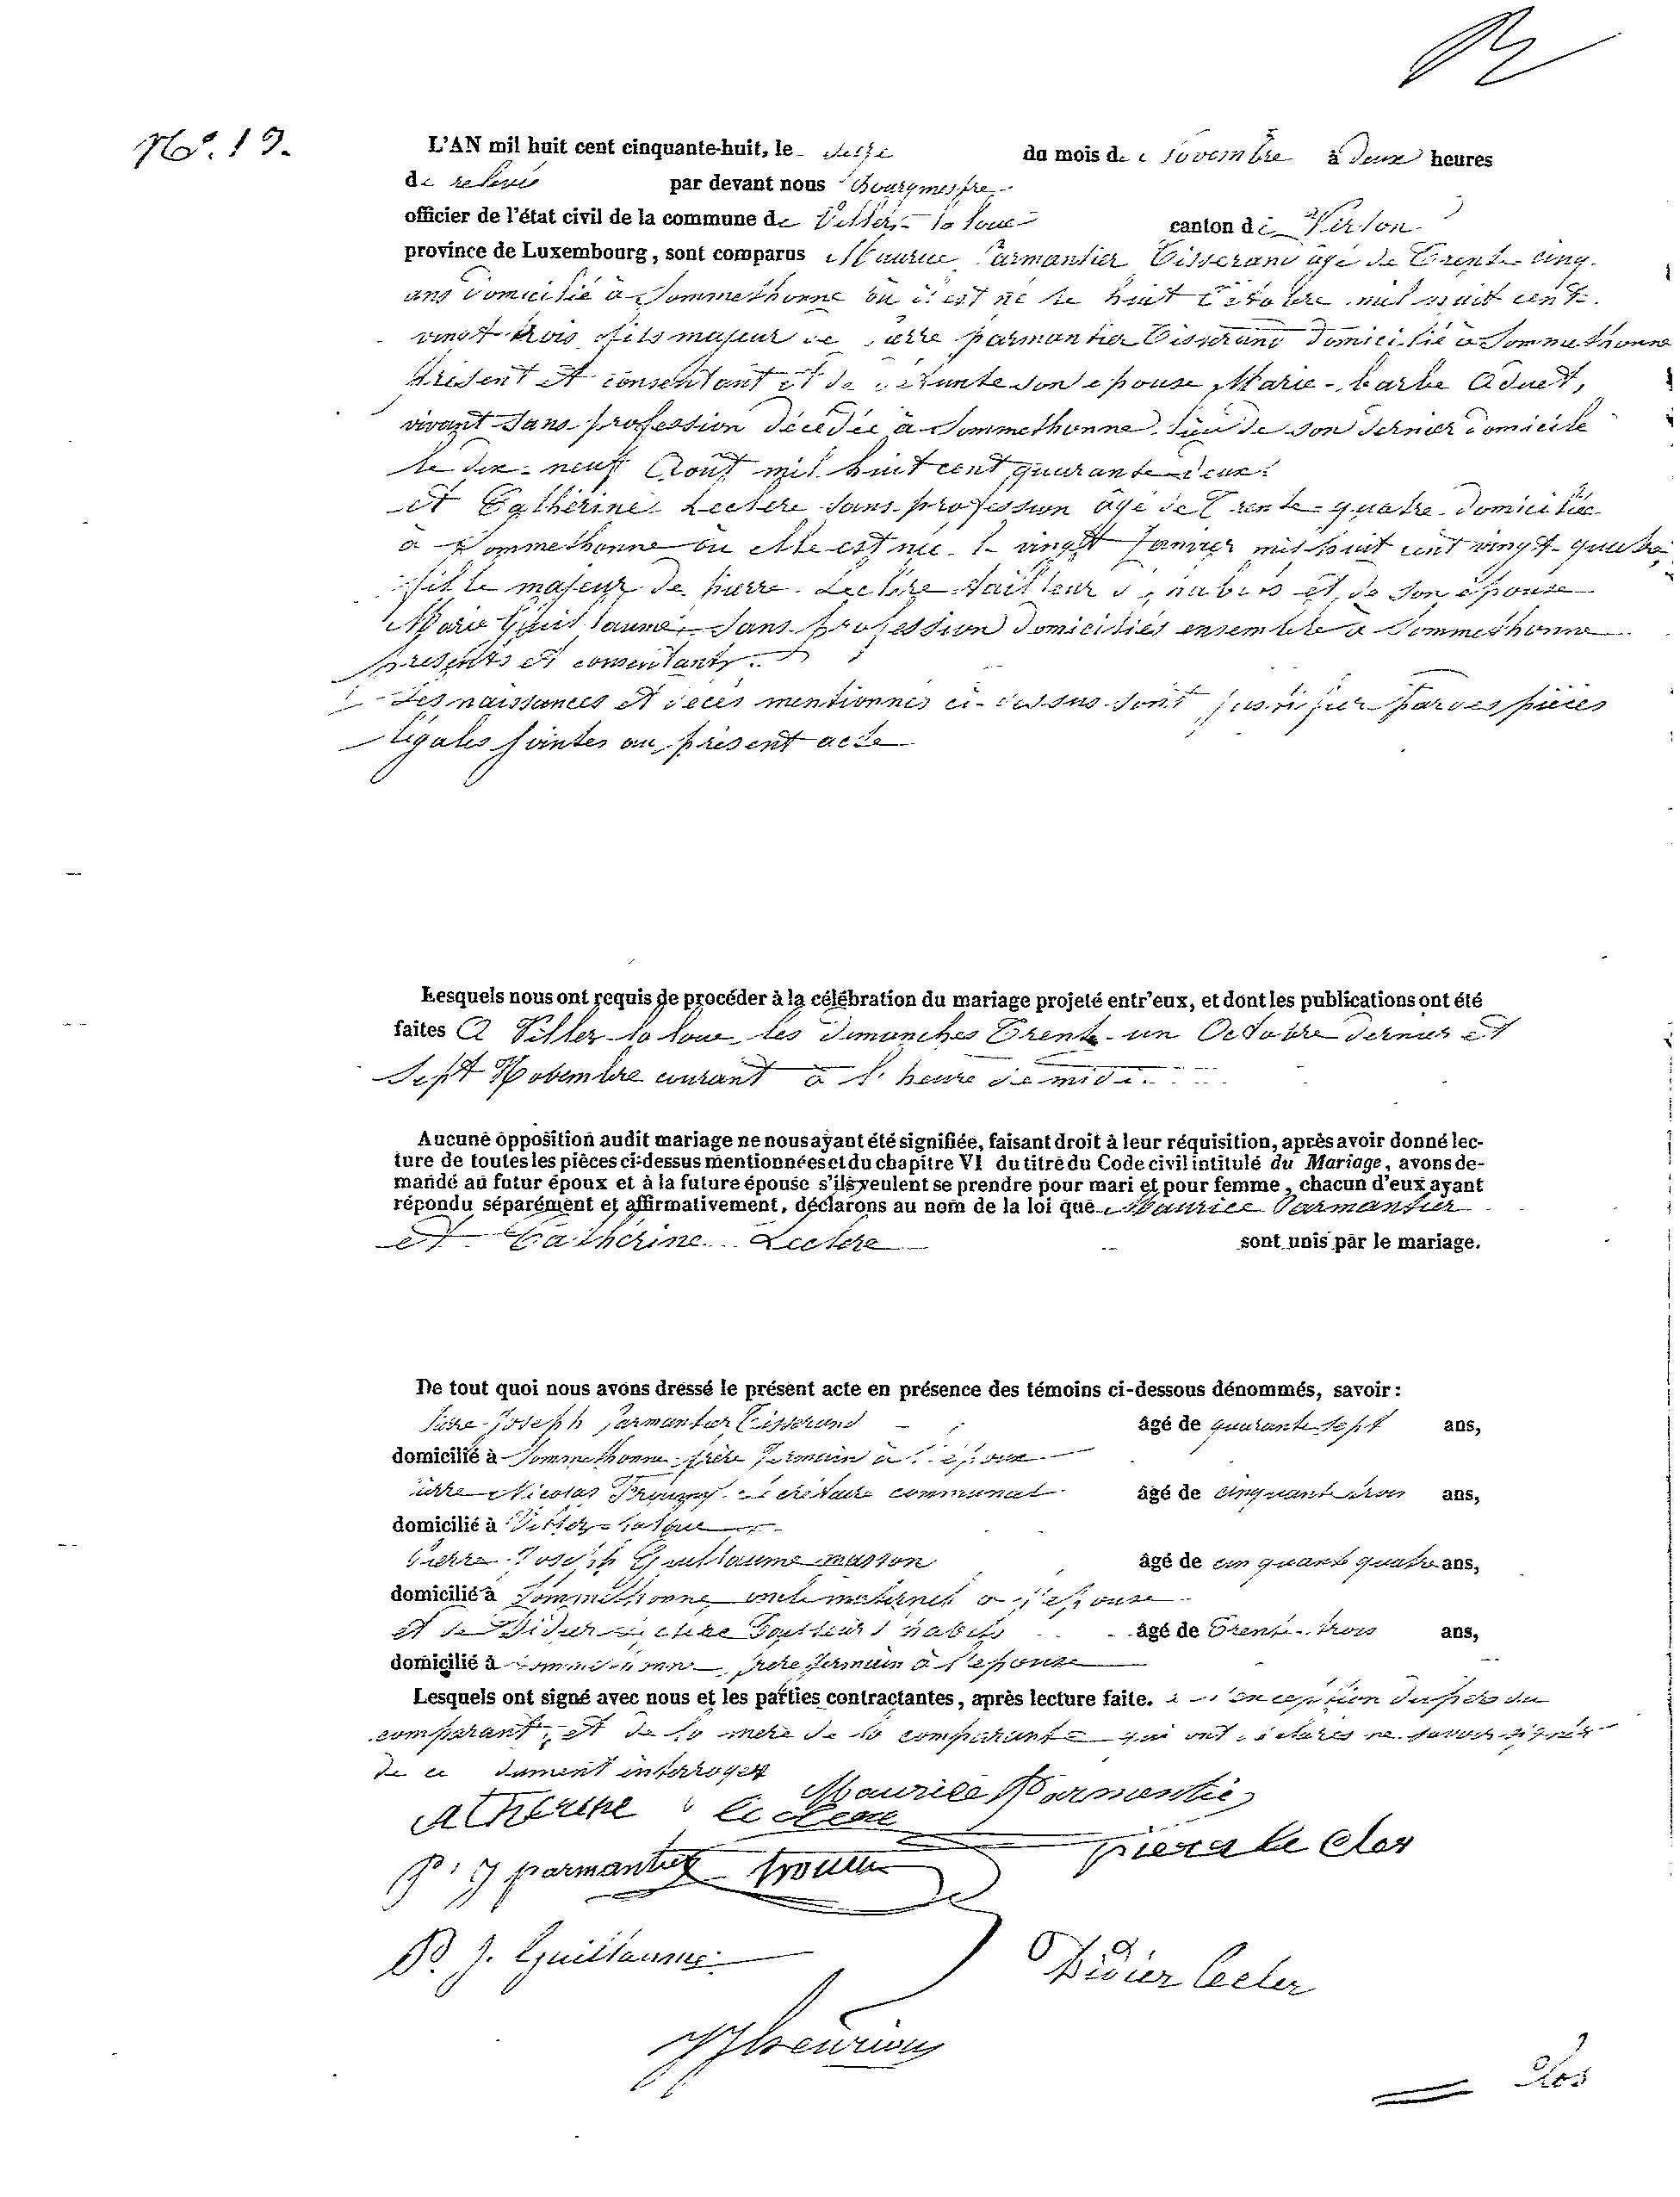 No. 19.
L'AN mil huit cent cinquante-huit, le seize du mois de Novembre à deux heures
de relevée par devant nous Bourgmestre
officier de l'état civil de la commune de Villers-la loue canton de Virton
province de Luxembourg, sont comparus Maurice Parmantier Tisserand âgé de Trente cinq
ans domicilié à Sommethonne où il est né le huit Octobre mil huit cent
vingt trois fils majeur de pierre parmantier Tisserand domicilié à Sommethonne
présent et consentant et de défunte son épouse Marie-barbe Aduet,
vivant sans profession décédée à Sommethonne lieu de son dernier domicile
le dix-neuf Aout mil huit cent quarante deux.
et Cathérine Leclere sans profession âgé de Trente-quatre domiciliée
à Sommethonne où elle est née le vingt Janvier mil huit cent vingt-quatre,
fille majeur de pierre Leclere tailleur d'habits et de son épouse
Marie Guillaume, sans profession domiciliés ensemble à Sommethonne
présents et consentants.
Les naissances et décès mentionnés ci-dessus sont justifier par des pièces
légales jointes au présent acte
Lesquels nous ont requis de procéder à la célébration du mariage projeté entr'eux, et dont les publications ont été
faites A Viller la loue les dimanches Trente-un Octobre dernier et
Sept Novembre courant à l'heure de midi.
Aucune opposition audit mariage ne nous ayant été signifiée, faisant droit à leur réquisition, après avoir donné lec-
ture de toutes les pièces ci-dessus mentionnées et du chapitre VI du titre du Code civil intitulé du Mariage, avons de-
mandé au futur époux et à la future épouse s'ils veulent se prendre pour mari et pour femme, chacun d'eux ayant
répondu séparément et affirmativement, déclarons au nom de la loi que Maurice Parmantier
et Cathérine Leclere sont unis par le mariage.
De tout quoi nous avons dressé le présent acte en présence des témoins ci-dessous dénommés, savoir:
Pierre-Joseph Parmantier Tisserand âgé de quarante sept ans,
domicilié à Sommethonne frère germain à l'époux
pierre Nicolas secrétaire communal âgé de cinquante trois ans,
domicilié à Viller-la loue
Pierre Joseph Guillaume masson âgé de cinquante quatre ans,
domicilié à Sommethonne oncle maternel à l'épouse
et de Didier Leclere Tailleur d'habits âgé de Trente-trois ans,
domicilié à Sommethonne frère germain à l'épouse
Lesquels ont signé avec nous et les parties contractantes, après lecture faite. à l'exception du père du
comparant, et de la mère de la comparante qui ont déclarés ne savoir signer
de ce dument interroger
Maurice Parmantier
catherine leclere
piere le cler
P. J parmantier
P. J. Guillaume
Didier Lecler